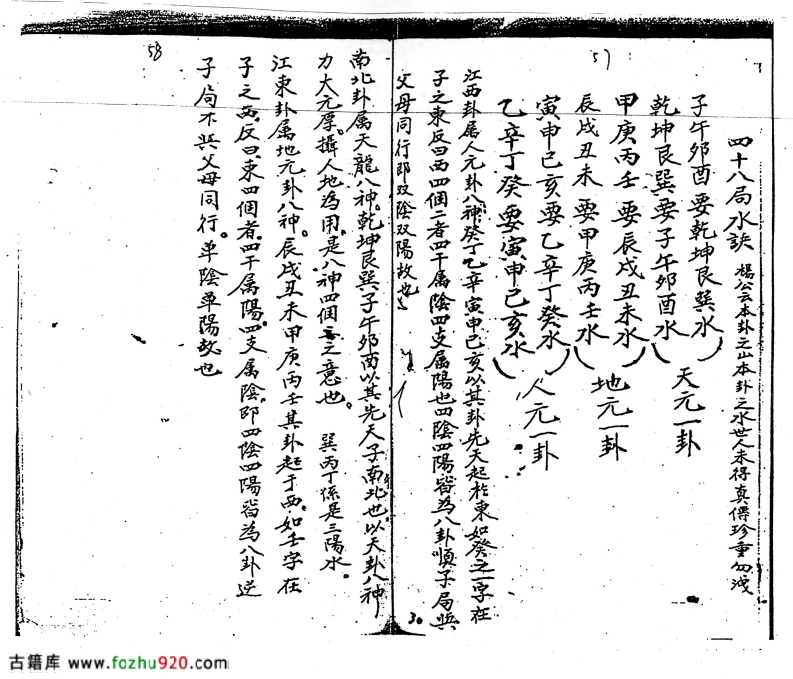 57
四十八局水訣 楊公云本卦之山本卦之水世人未得真傳珍重勿洩
子午卯酉要乾坤艮巽水
乾坤艮巽要子午卯酉水
天元一卦
甲庚丙壬要辰戌丑未水
辰戌丑未要甲庚丙壬水
地元一卦
寅申巳亥要乙辛丁癸水
乙辛丁癸要寅申巳亥水
人元一卦
江西卦屬人元卦八神癸丁乙辛寅申巳亥以其卦先天起於東如癸之一字在
子之東反曰西四個二者四干属陰四支属陽也四陰四陽皆為八卦順子局與
父母同行即双陰双陽故也
30
58
南北卦属天龍八神。乾坤艮巽子午卯酉以其先天子南北也以天卦八神
力大元厚。攝人地為用。是八神四個一之意也。 巽丙丁係是三陽水。
江東卦属地元卦八神。辰戌丑未甲庚丙壬其卦起于西。如壬字在
子之西。反曰東四個者。四干属陽。四支属陰。即四陰四陽皆為八卦逆
子局不與父母同行。单陰单陽故也
古籍库 www.fozhu920.com